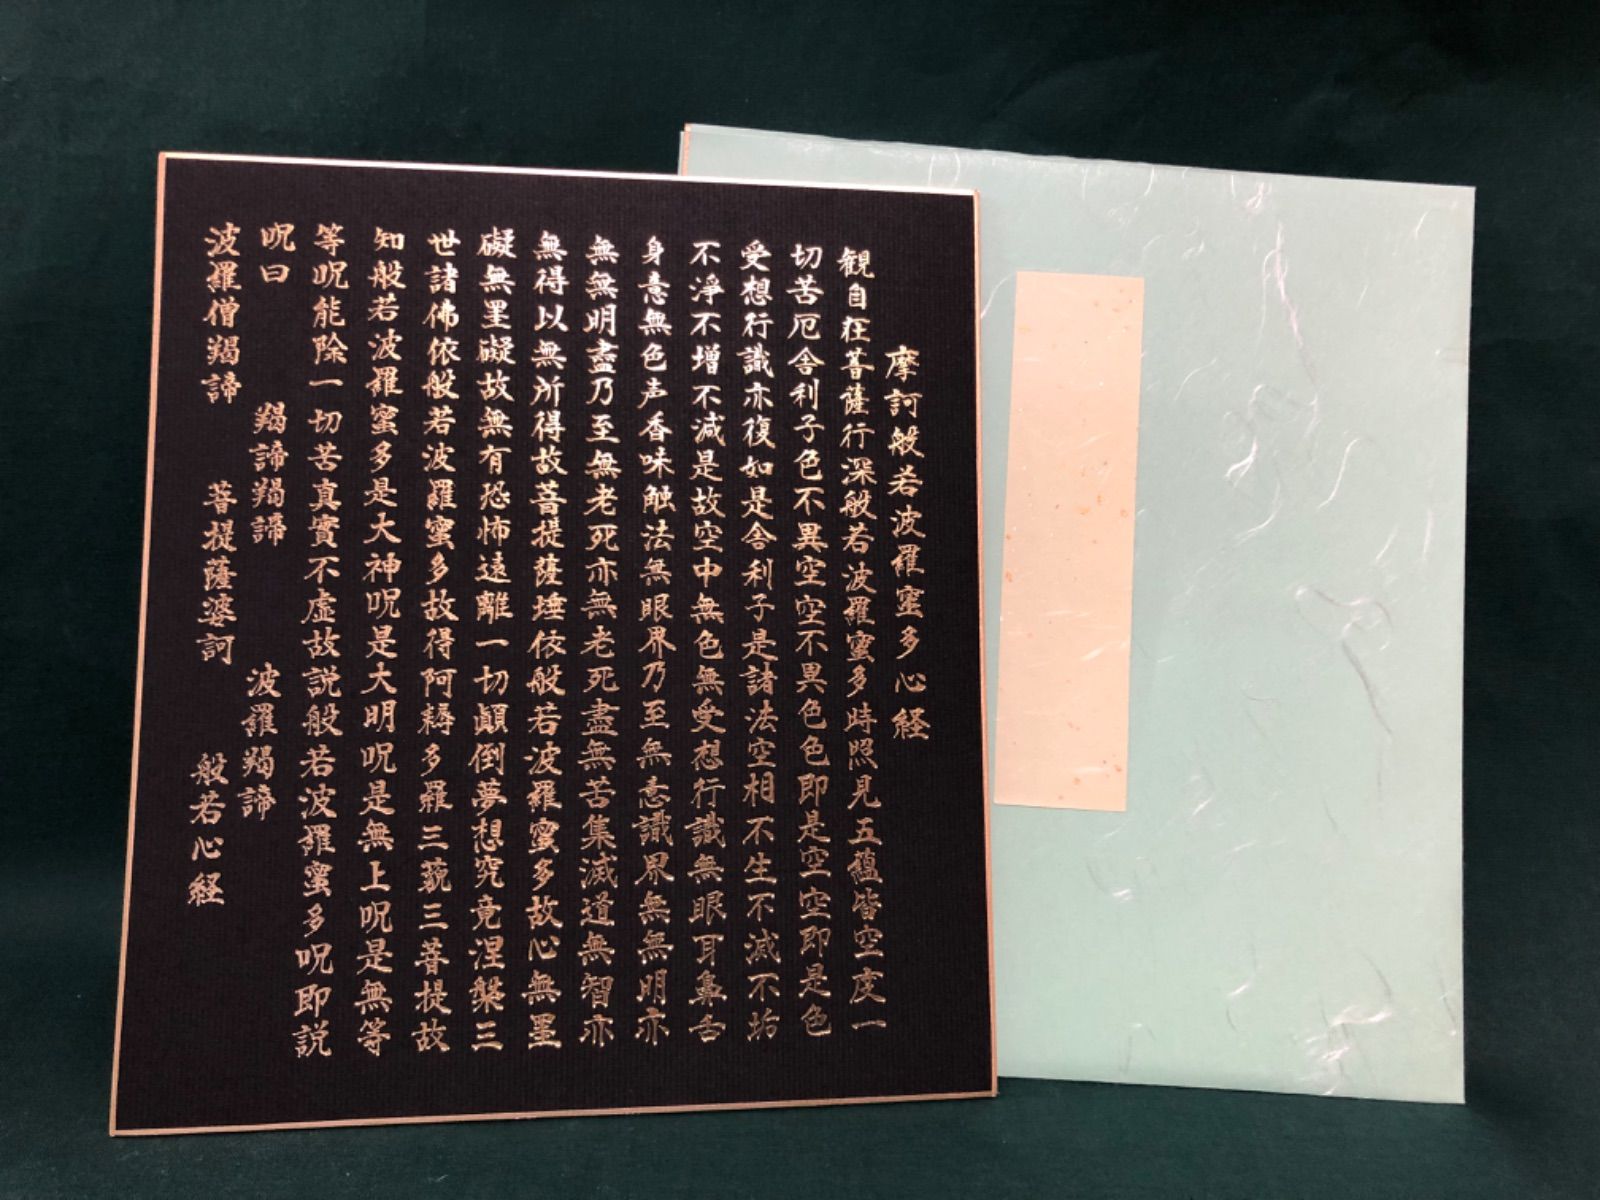 摩訶般若波羅蜜多心経
観自在菩薩行深般若波羅蜜多時照見五蘊皆空度一
切苦厄舎利子色不異空空不異色色即是空空即是色
受想行識亦復如是舎利子是諸法空相不生不滅不垢
不浄不増不減是故空中無色無受想行識無眼耳鼻舌
身意無色声香味触法無眼界乃至無意識界無無明亦
無無明盡乃至無老死亦無老死盡無苦集滅道無智亦
無得以無所得故菩提薩埵依般若波羅蜜多故心無罣
礙無罣礙故無有恐怖遠離一切顛倒夢想究竟涅槃三
世諸佛依般若波羅蜜多故得阿耨多羅三藐三菩提故
知般若波羅蜜多是大神呪是大明呪是無上呪是無等
等呪能除一切苦真實不虚故説般若波羅蜜多呪即説
呪曰 羯諦羯諦 波羅羯諦
波羅僧羯諦 菩提薩婆訶 般若心経